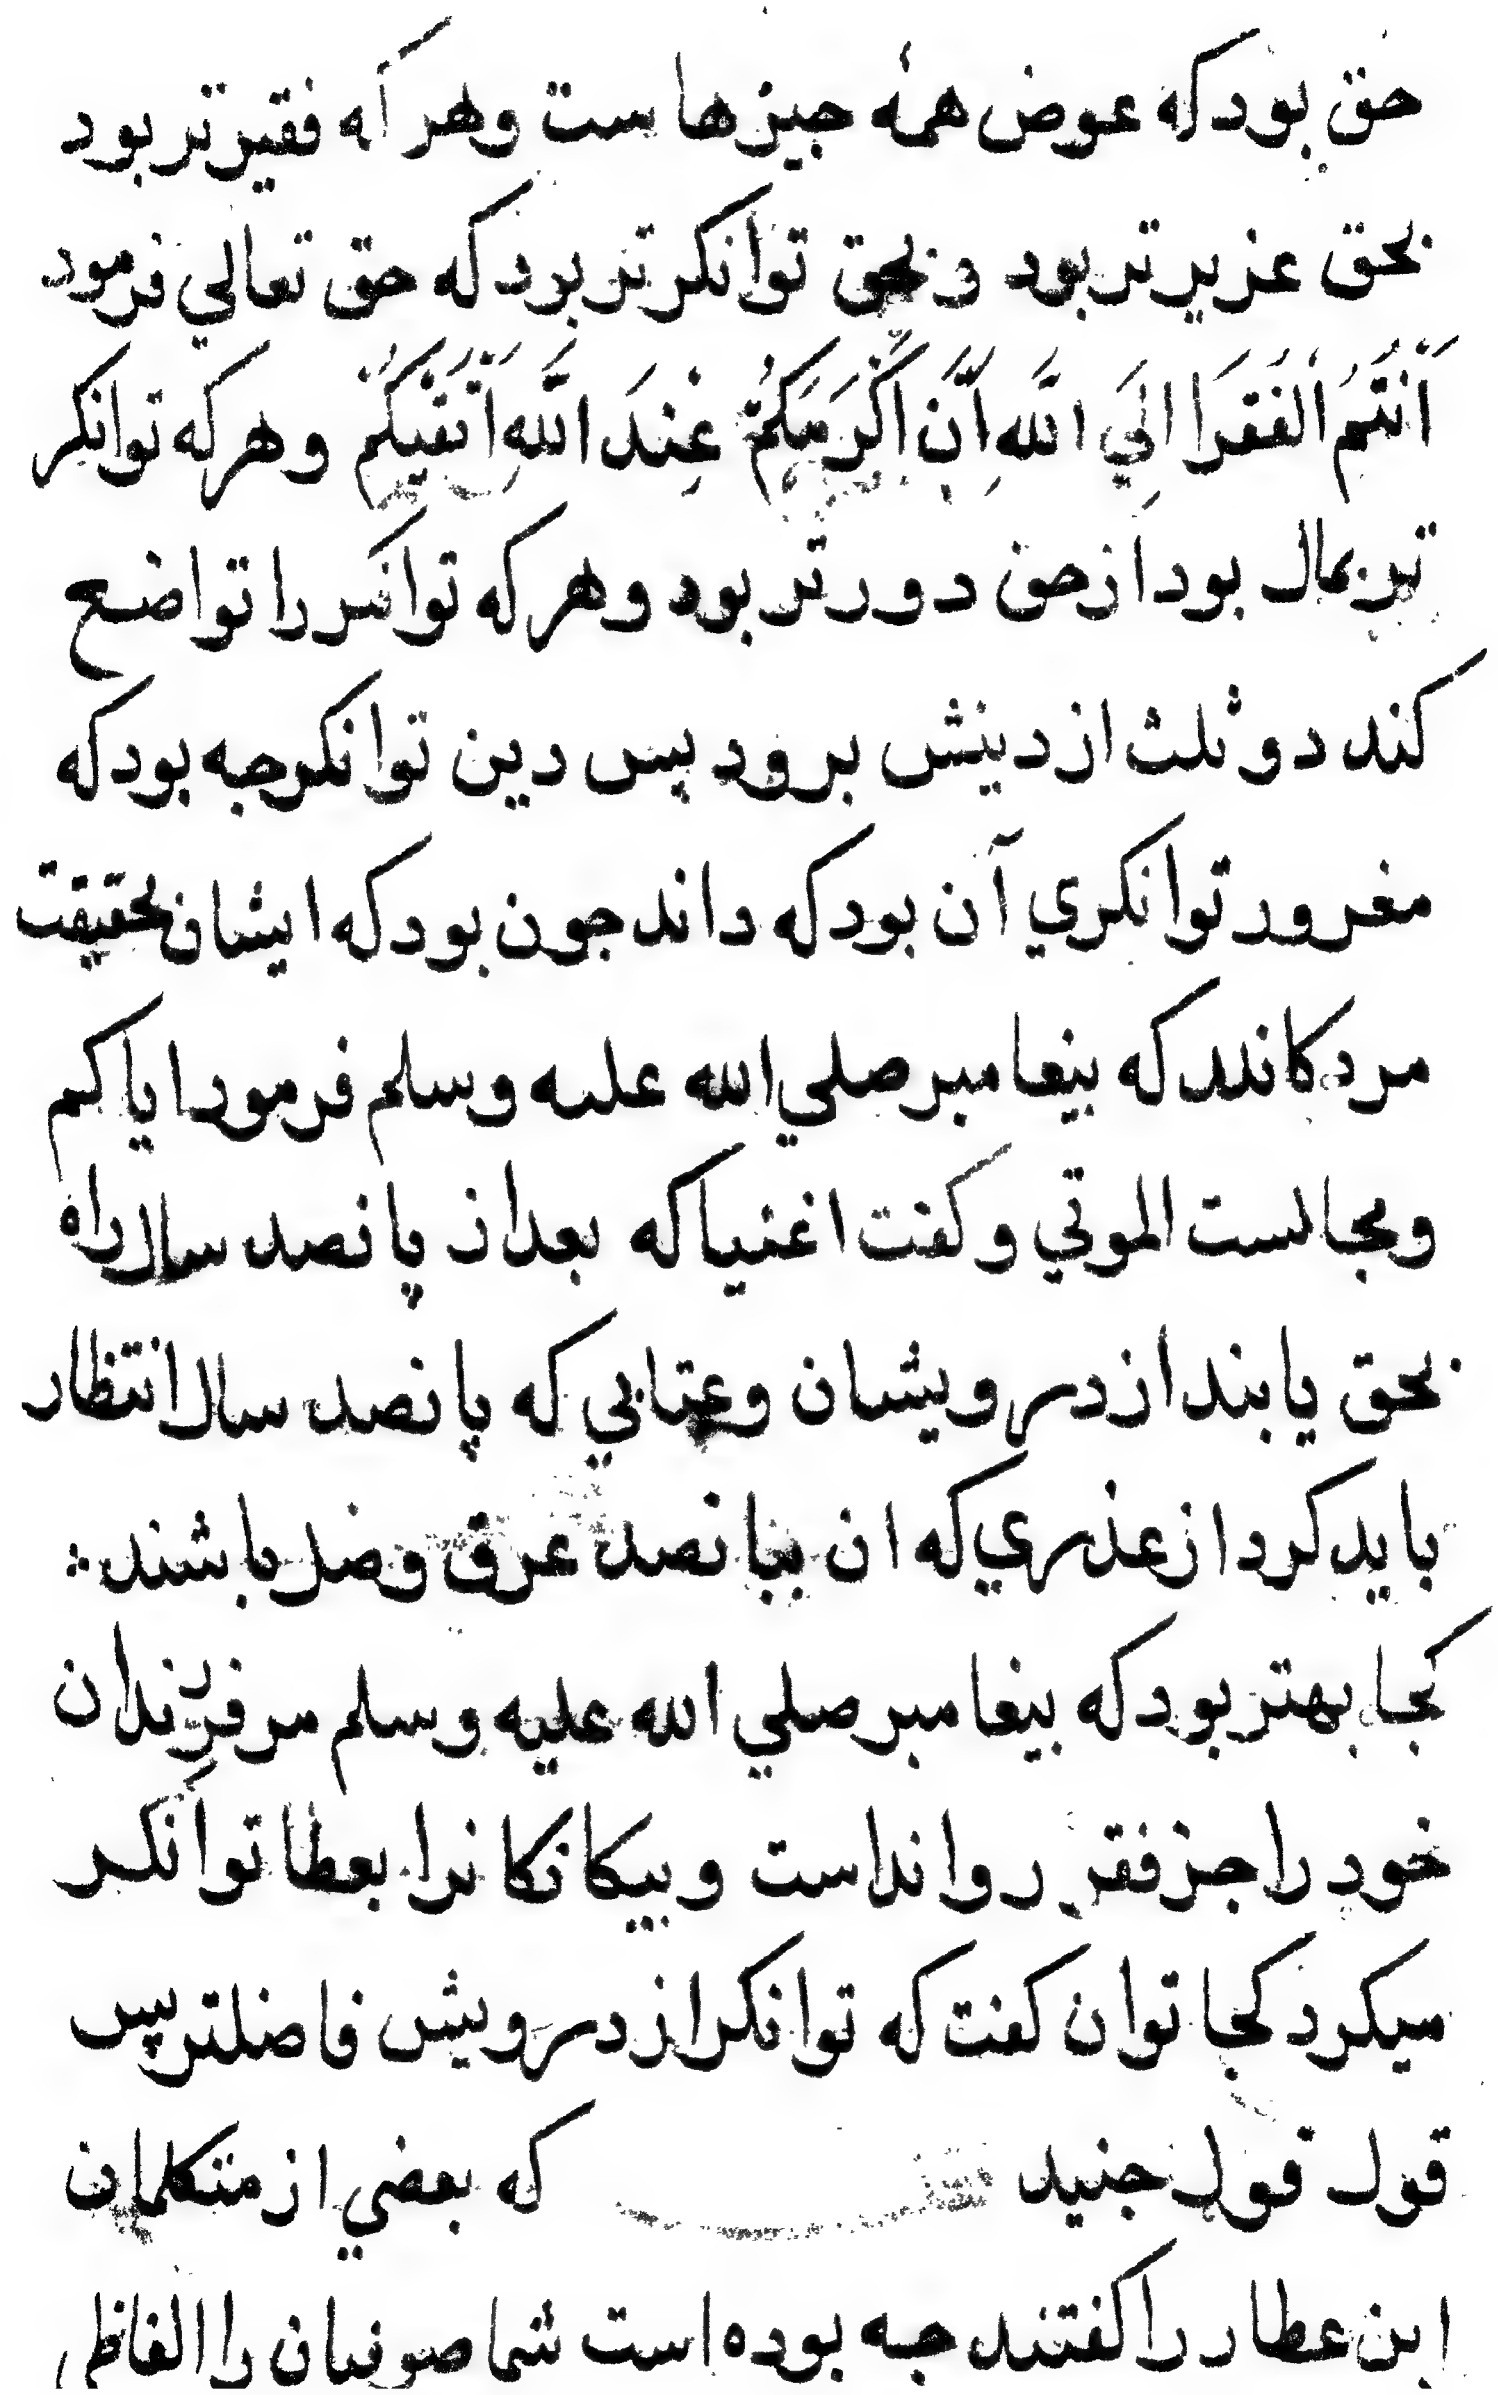 حق بود كه عوض همه جيزها ست وهر كه فقيرتر بود
بحق عزيرتر بود وبحق توانكرتر برد كه حق تعالي فرمود
اَنْتُمُ الفُقَرا اِلَي اللّه اِنَّ اَكْرَمَكُمْ عِنْدَ اللّهِ اَتْقيكُم وهركه توانكر
تر بمال بود از حق دورتر بود وهركه توانكر را تواضع
كند دو ثلث از دينش برود پس دين توانكر جه بود كه
مغرور توانكري آن بود كه داند جون بود كه ايشان بحقيقت
مردكانند كه بيغامبر صلي الله عليه وسلم فرمود اياكم
ومجالست الموتي وكفت اغنيا كه بعد از پانصد سال راه
بحق يابند از درويشان وعتابي كه پانصد سال انتظار
بايد كرد از عذري كه ان بپانصد عرق وضل باشند
كجا بهتر بود كه بيغامبر صلي الله عليه وسلم مر فرزندان
خود را جز فقر روا نداست وبيكانكانرا بعطا توانكر
ميكرد كجا توان كفت كه توانكر از درويش فاضلتر پس
قول قول جنيد كه بعضي از متكلمان
ابن عطار را كفتند جه بوده است شما صوفيان را الفاظي